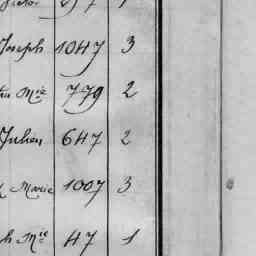 Joseph 1047 3
Mie 779 2
Julien 647 2
Marie 1007 3
h Mie 47 1